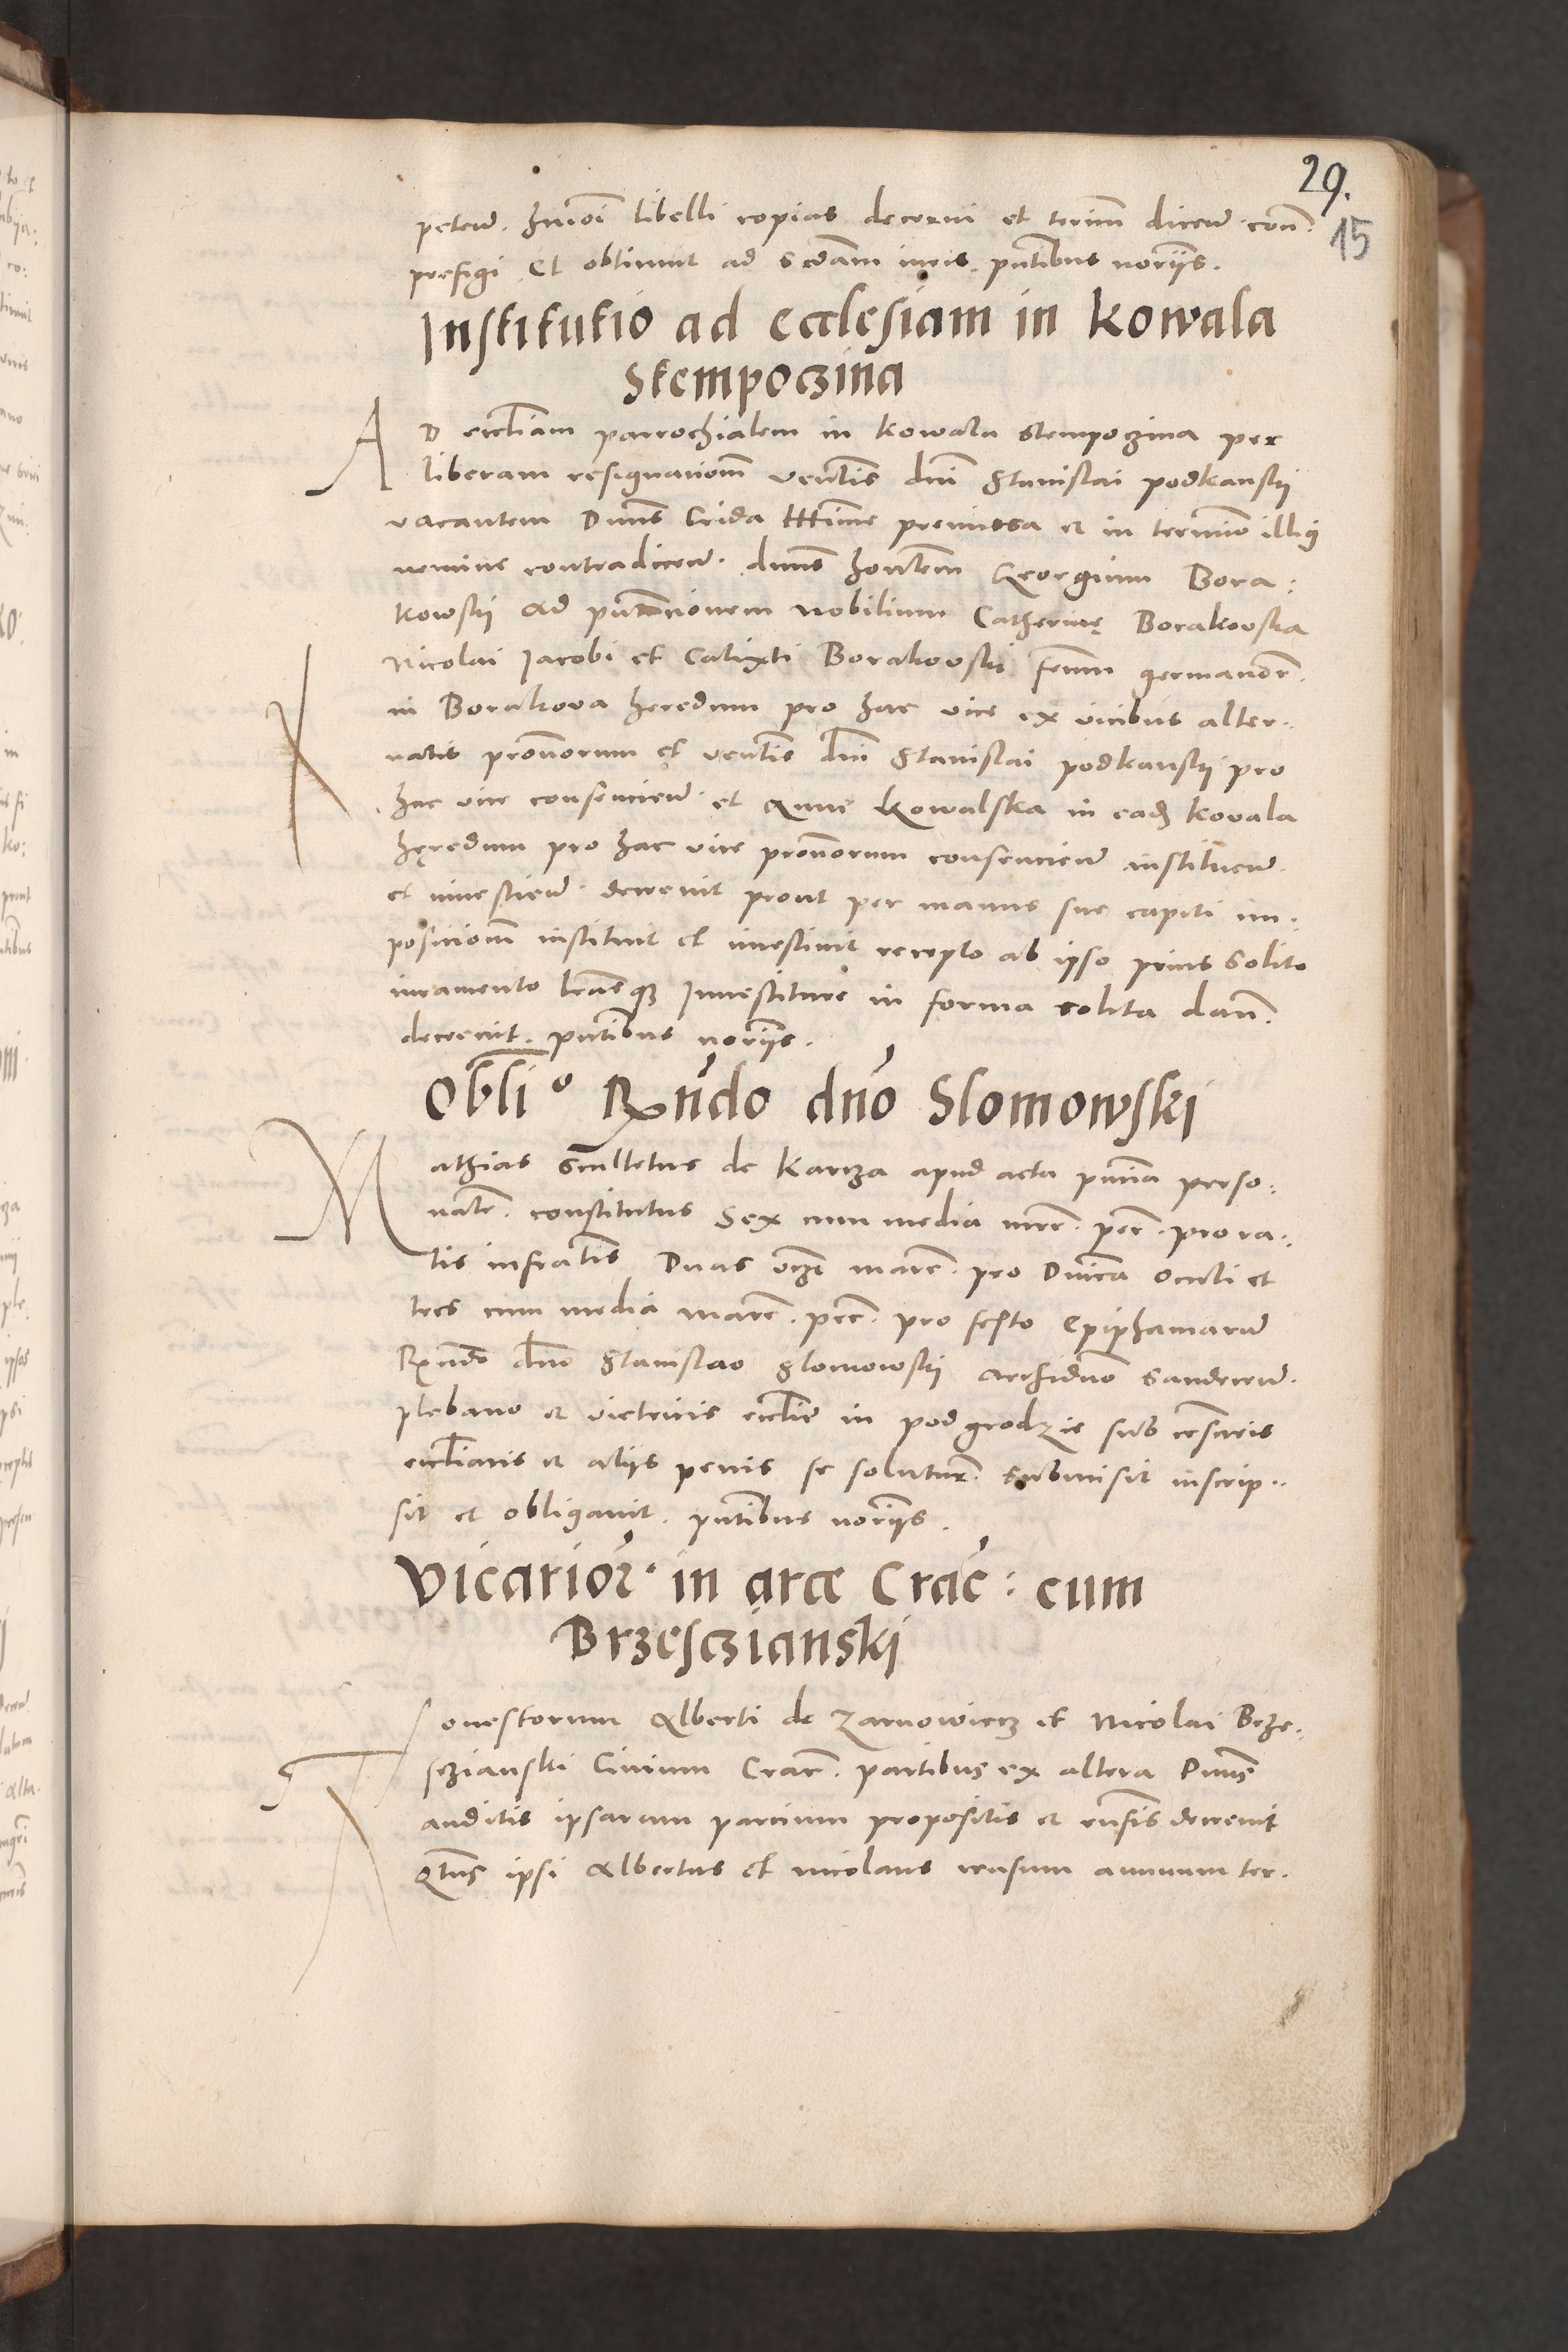 29.
15
peteñ. hmōi libelli copias decerni et termm̄ diceñ. con̄.
prefigi et obtinuit ad s cdam iuris. pn̄tibus norijs.
Institutio ad ecclesiam in Kowala
Stempoczina
AD eccliam parrochialem in Kowala Stempoczina per
liberam resignationem ven̄lis dni Stanislai podkanskij
vacantem Dnus Crida L̄tīme premissa et in termino illius
nemine contradiceñ. dnus honl̄em Georgium Bora:
kowskij ad pn̄tacionem nobilium Catherine Borakovska
Nicolai Jacobi et Calixti Borakovskj frum germanor̄.
in Borakova heredum pro hac vice ex vicibus alter..
natis pron̄orum et ven̄lis dni Stanislai podkanskij pro
hac vice consencieñ. et Anne Kowalska in ead̄ Kovala
heredum pro hac vice pron̄orum consencieñ instituenð.
et investienð. decrevit prout per manus sue capiti im..
posicionem instituit et investivit recepto ab ipso prius solito
iuramento l̄rasq3 Investiture in forma solita dan̄.
decrevit. pn̄tibus norijs.
Obl̄io Rn̄do dn̄o Slomowski
Mathias Scultetus de Karcza apud acta pn̄cia perso:
nalr̄. constitutus Sex cum media mrc̄. pec̄. pro ra..
tis infr̄atis Duas vcz̄ marc̄. pro Dn̄ica Oculi et
tres cum media marc̄. pec̄. pro festo Epiphaniarū
Rn̄do dn̄o Stanislao Slomowskij archidn̄o Sandecen̄.
plebano et victricis eccl̄ie in podgrodzie sub cēsuris
eccl̄iaticis et alijs penis se soluturr̄. submisit inscrip..
sit et obligavit. pn̄tibus norijs.
Vicarior̄. in arce Crac̄: cum
Brzesczianski
Honestorum Alberti de Zarnowiecz et Nicolai Brze..
sczianski Civium Crac̄. partibus ex altera Dnus
auditis ipsarum parcium propositis et rn̄sis decrevit
q̄tus ipsi Albertus et Nicolaus censum annuum ter.